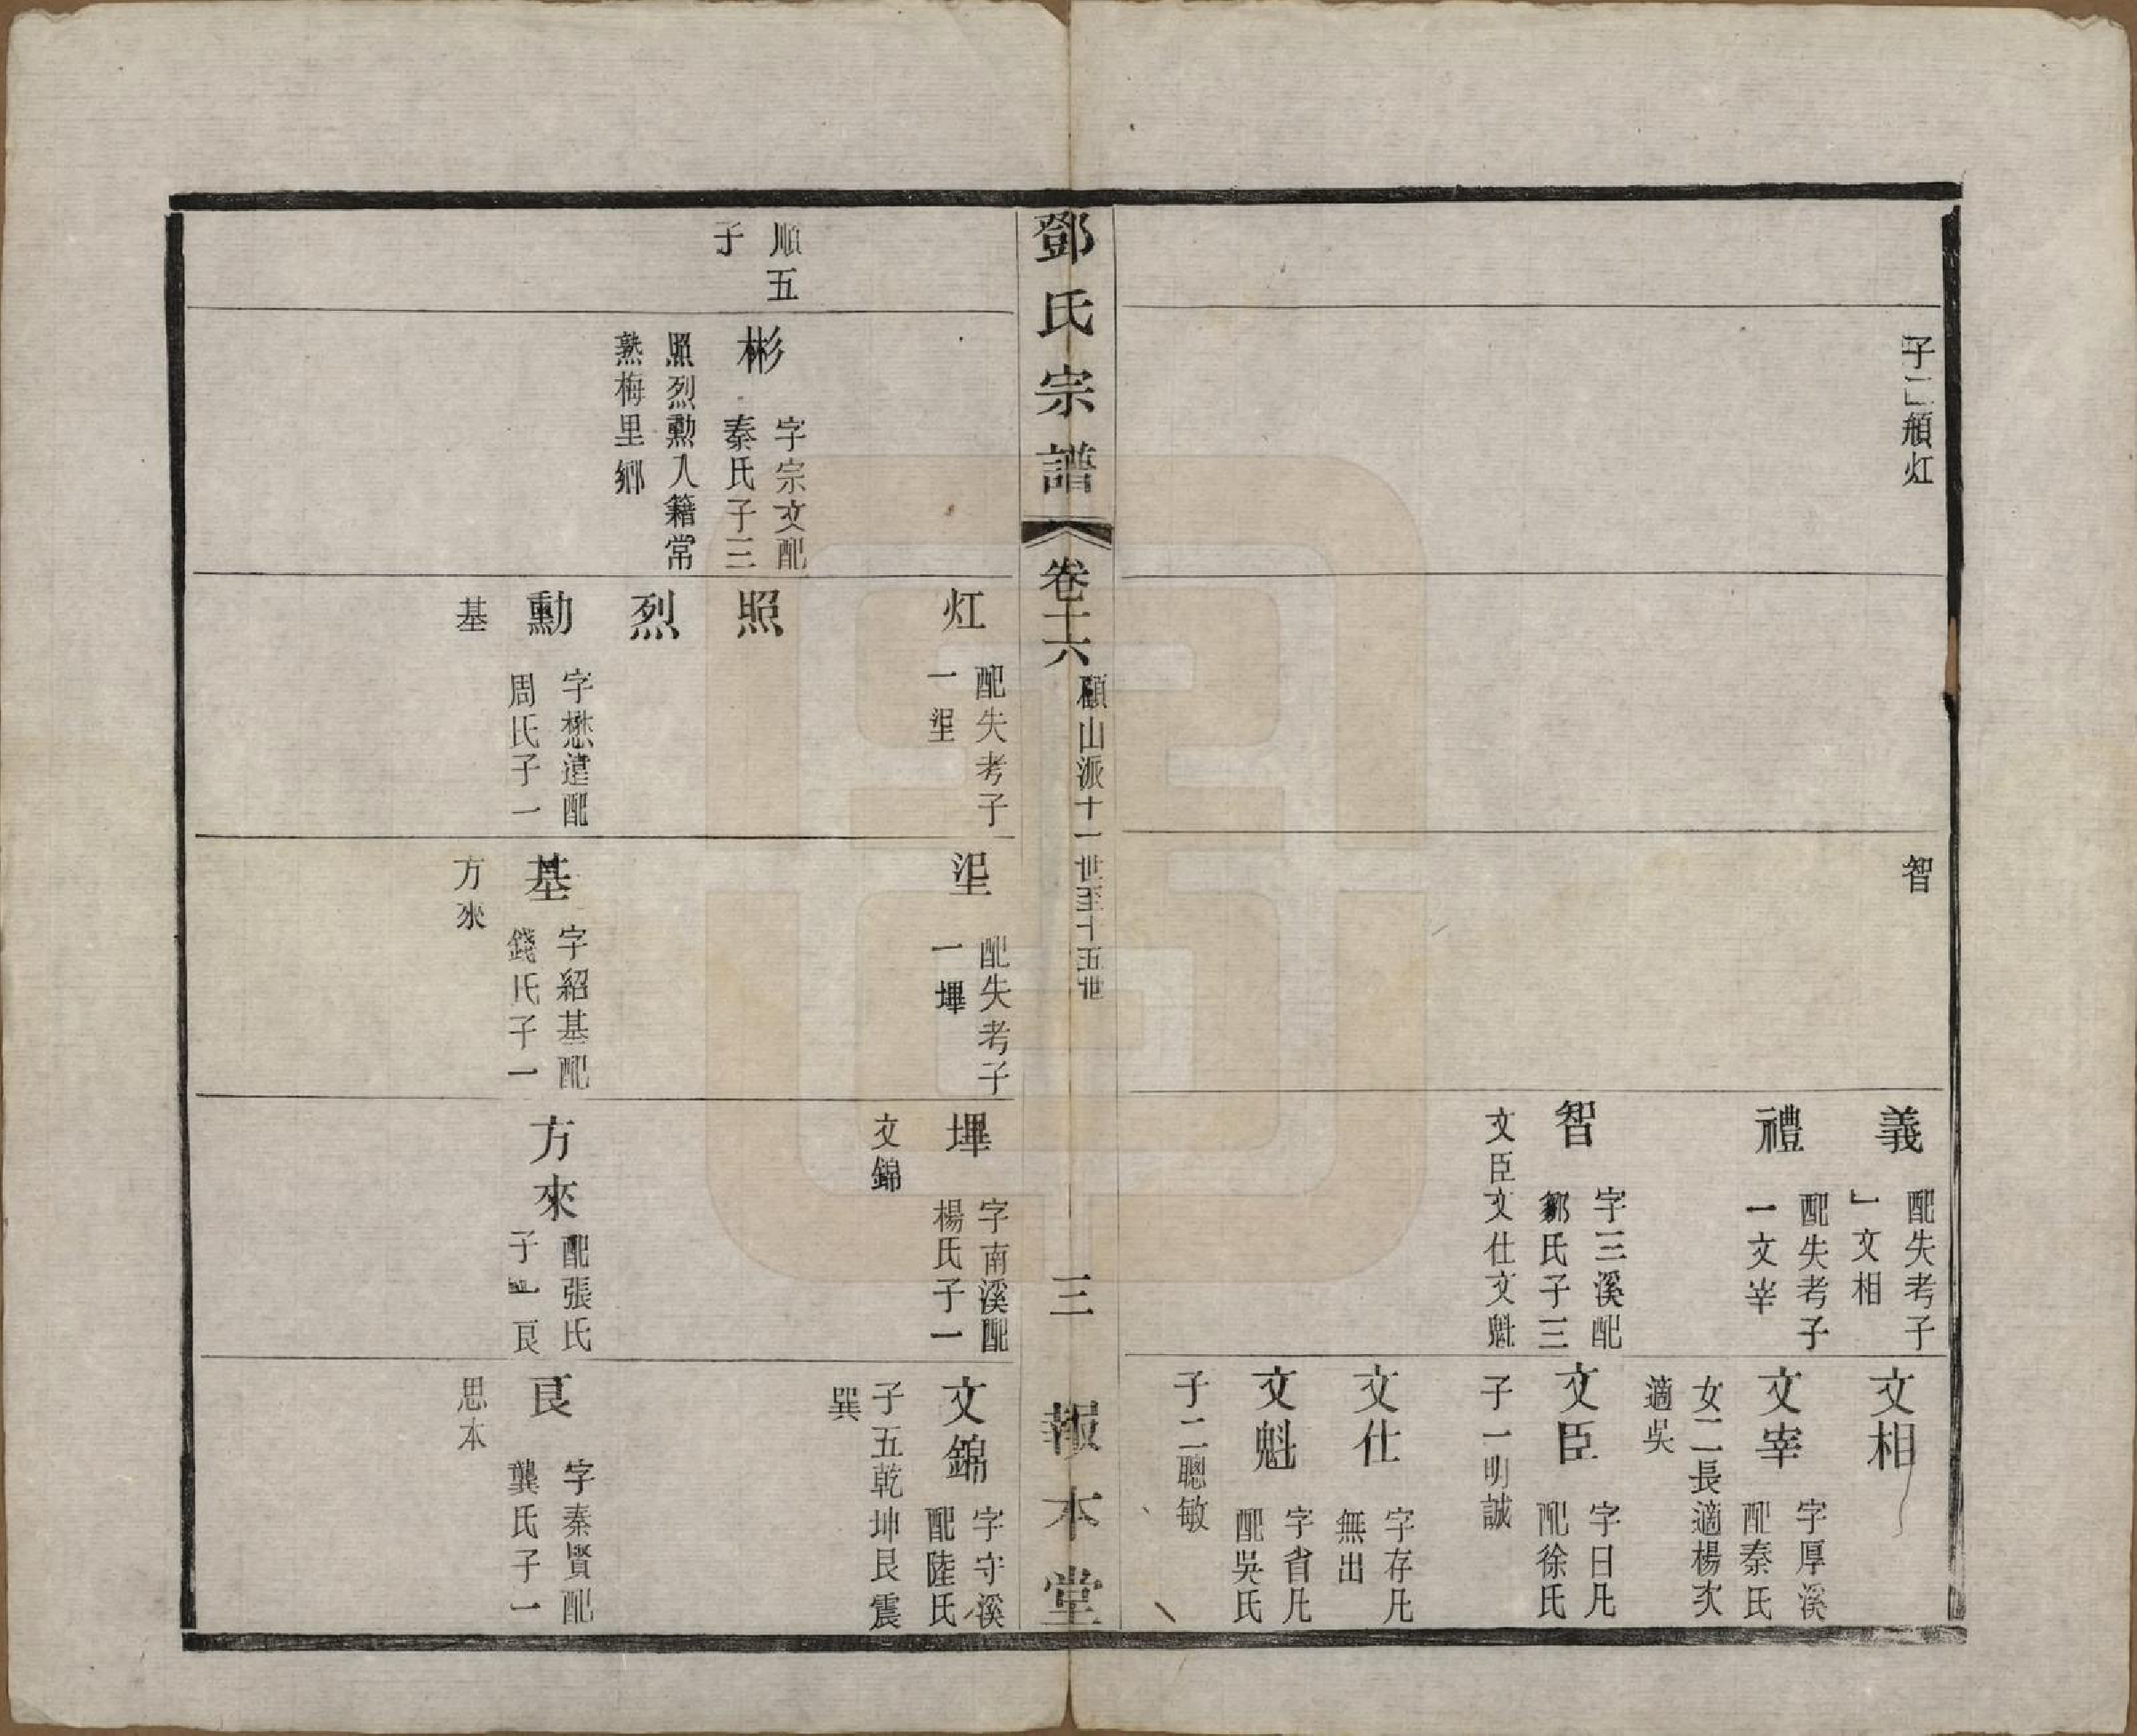 子二頎灴
智
義
配失考子
一文相
禮
配失考子
一文宰
智
字三溪配
鄒氏子三
文臣文仕文魁
文相
文宰
字厚溪
配秦氏
女二長適楊次
適吳
文臣
字日凡
配徐氏
子一明誠
文仕
字存凡
無出
文魁
字省凡
配吳氏
子二聰敏
鄧氏宗譜
卷十六
顧山派十一世至十五世
三
報本堂
灴
配失考子
一浧
浧
配失考子
一墿
墿
字南溪配
楊氏子一
文錦
文錦
字守溪
配陸氏
子五乾坤艮震
巽
順五
子
彬
字宗文配
秦氏子三
照烈勳入籍常
熟梅里鄉
照
烈
勳
字懋遠配
周氏子一
基
基
字紹基配
錢氏子一
方來
方來
配張氏
子一艮
艮
字秦賢配
龔氏子一
思本